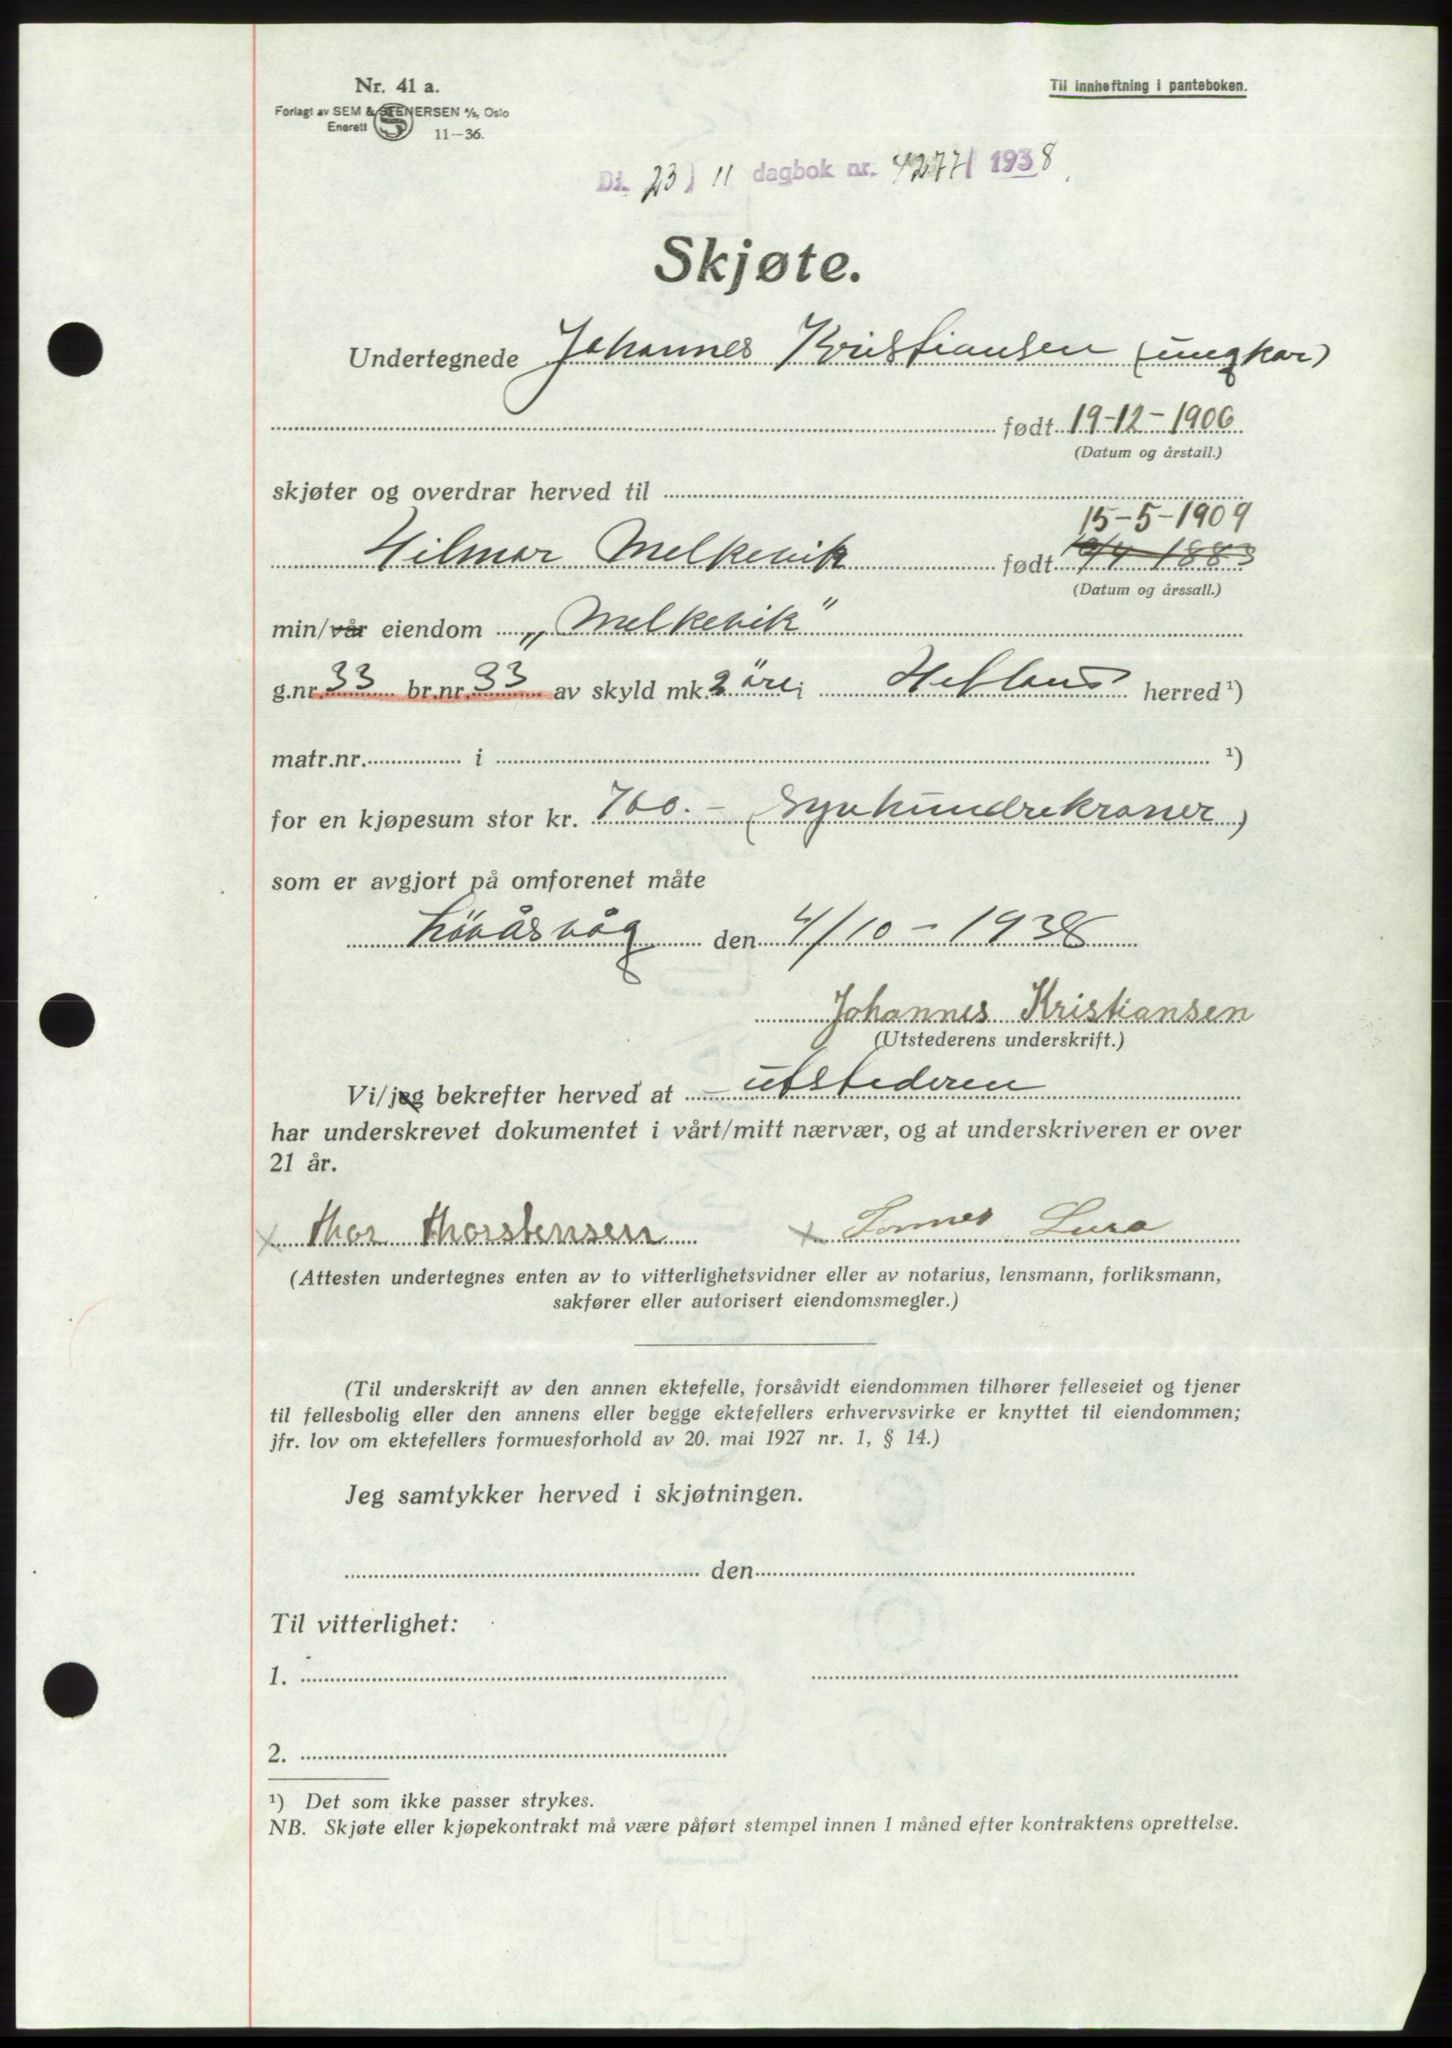 Nr. 41 a.
Forlagt av SEM & STENERSEN A/S, Oslo
Enerett
11—36.
Til innheftning i panteboken.
Dt. 23 / 11 dagbok nr. 4277/ 1938
Skjøte.
Undertegnede Johannes Kristiansen (ungkar)
født 19-12-1906
(Datum og årstall.)
skjøter og overdrar herved til
15-5-1909
Hilmar Melkevik født 1883
(Datum og årssall.)
min/vår eiendom „Melkevik"
g.nr. 33 br.nr. 33 av skyld mk. 2 öre i Hetland herred ¹)
matr.nr. i ¹)
for en kjøpesum stor kr. 700.- (Syvhundrekroner)
som er avgjort på omforenet måte
Lövåsvåg den 4/10-1938
Johannes Kristiansen
(Utstederens underskrift.)
Vi/jeg bekrefter herved at utstederen
har underskrevet dokumentet i vårt/mitt nærvær, og at underskriveren er over
21 år.
x Thor Thorstensen x Lura
(Attesten undertegnes enten av to vitterlighetsvidner eller av notarius, lensmann, forliksmann,
sakfører eller autorisert eiendomsmegler.)
(Til underskrift av den annen ektefelle, forsåvidt eiendommen tilhører felleseiet og tjener
til fellesbolig eller den annens eller begge ektefellers erhvervsvirke er knyttet til eiendommen;
jfr. lov om ektefellers formuesforhold av 20. mai 1927 nr. 1, § 14.)
Jeg samtykker herved i skjøtningen.
den
Til vitterlighet:
1.
2.
¹) Det som ikke passer strykes.
NB. Skjøte eller kjøpekontrakt må være påført stempel innen 1 måned efter kontraktens oprettelse.